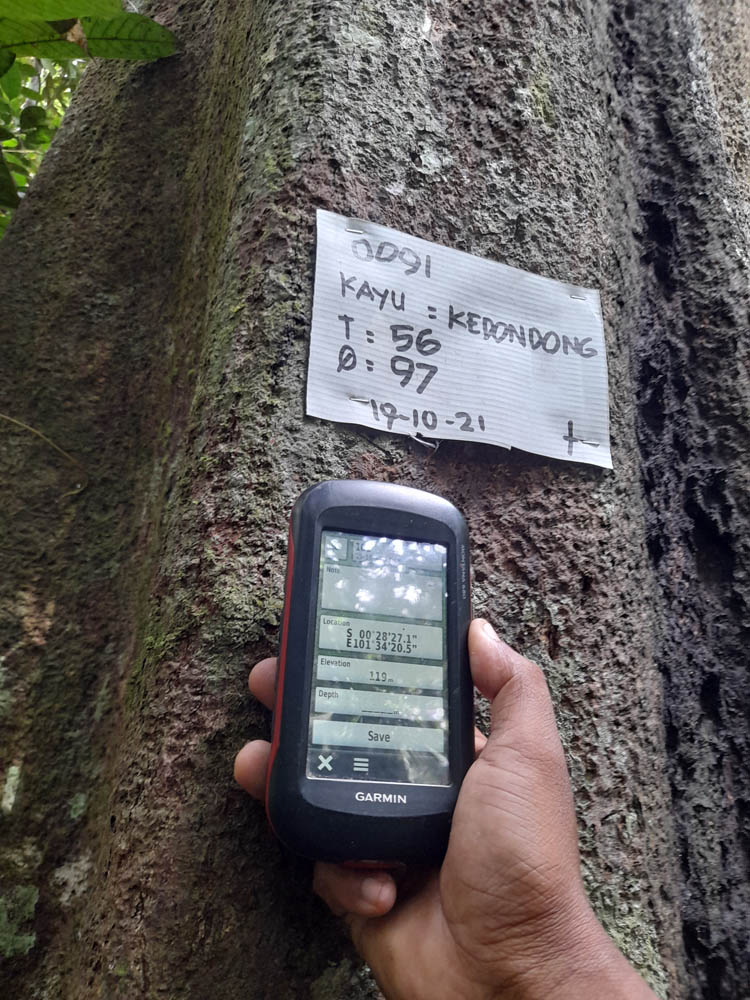 0091
KAYU : KEDONDONG
T : 56
Ø : 97
19-10-21
Note
Location
S 00°28'27.1"
E101°34'20.5"
Elevation
119 m
Depth
Save
GARMIN